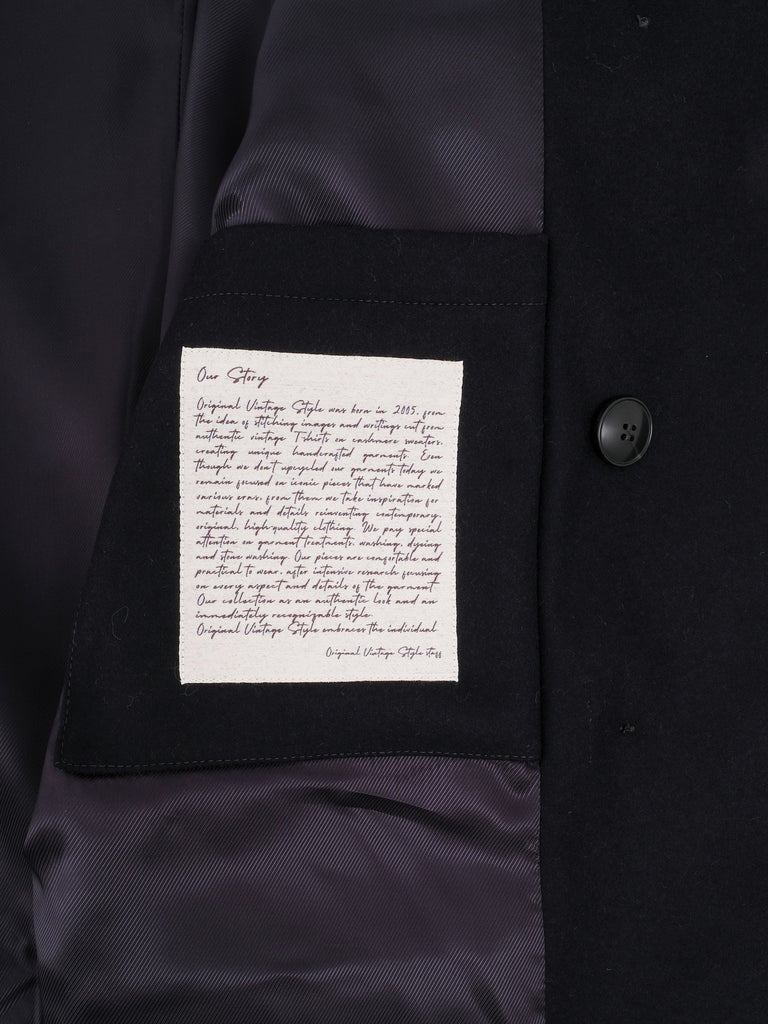 Our Story
Original Vintage Style was born in 2005, from
the idea of stitching images and writings cut from
authentic vintage T-shirts on cashmere sweaters,
creating unique handcrafted garments. Even
though we don't upcycled our garments today we
remain focused on iconic pieces that have marked
various eras, from them we take inspiration for
materials and details reinventing contemporary,
original, high-quality clothing. We pay special
attention on garment treatments, washing, dyeing
and stone washing. Our pieces are comfortable and
practical to wear, after intensive research focusing
on every aspect and details of the garment.
Our collection as an authentic look and an
immediately recognizable style.
Original Vintage Style embraces the individual.
Original Vintage Style staff